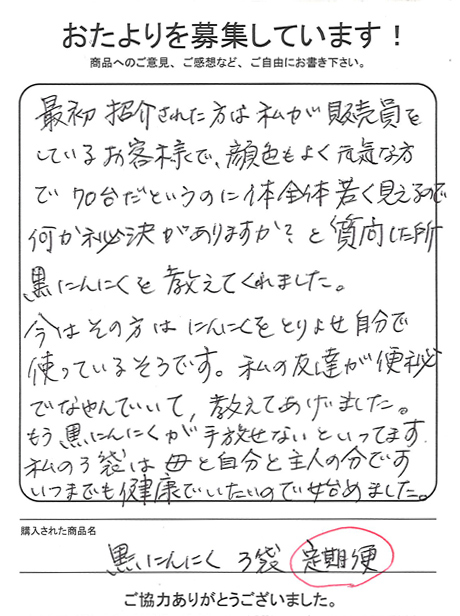 おたよりを募集しています！
商品へのご意見、ご感想など、ご自由にお書き下さい。
最初 招介された方は私が販売員を
しているお客様で、顔色もよく元気な方
で 70台だというのに体全体若く見えるので
何か秘決がありますか？と質向した所
黒にんにくを教えてくれました。
今はその方は にんにくをとりよせ自分で
使っているそうです。私の友達が便秘
でなやんでいて、教えてあげました。
もう黒にんにくが手放せないといってます。
私の3袋は母と自分と主人の分です
いつまでも健康でいたいので始めました。
購入された商品名
黒にんにく 3袋 定期便
ご協力ありがとうございました。